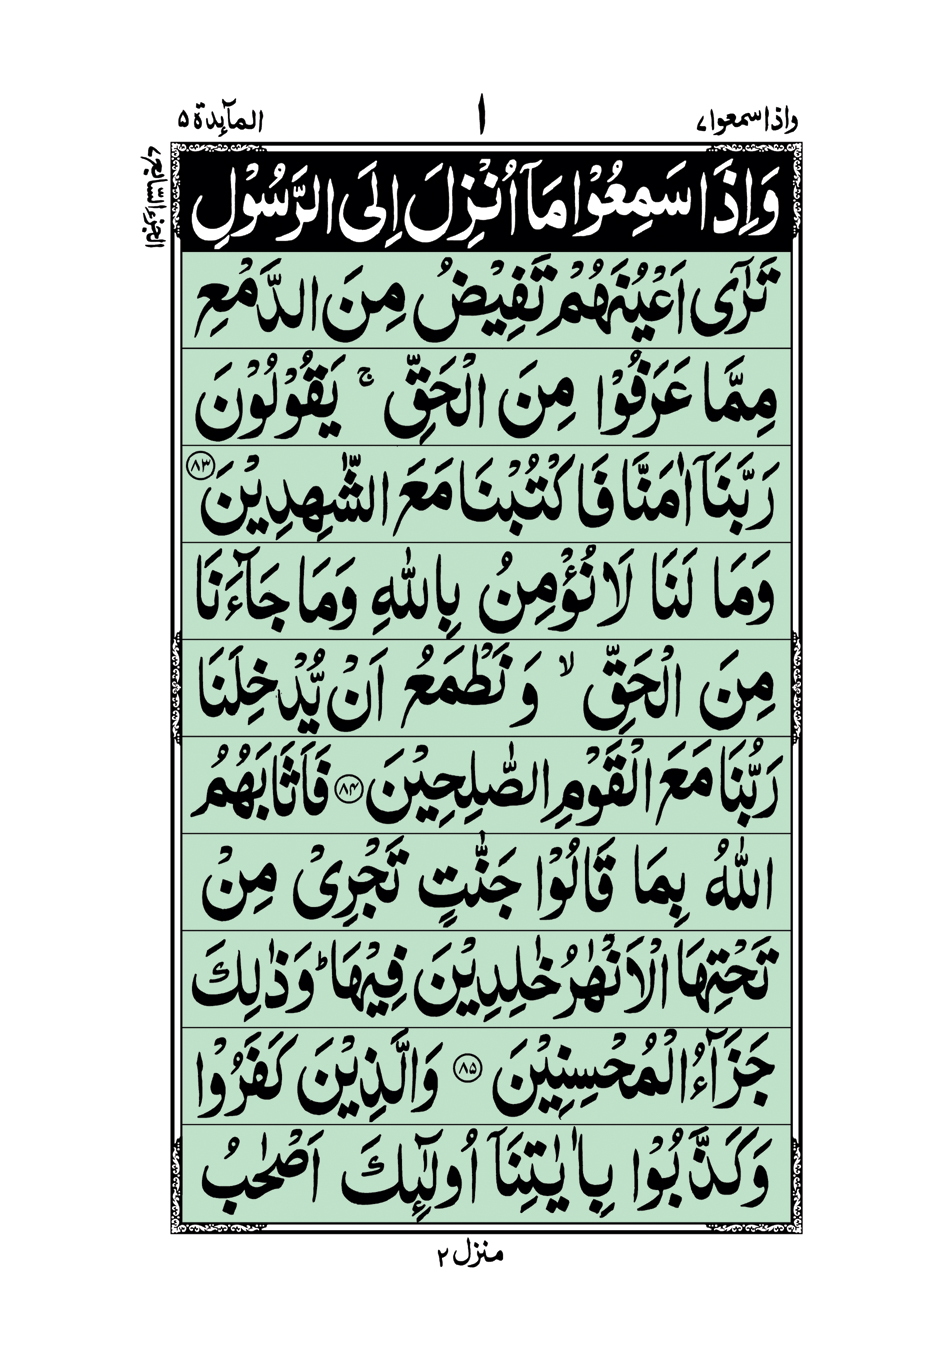 واذاسمعوا٧ ا المآئدة ۵
الجزءالسابع٧
وَاِذَا سَمِعُوْا مَآ اُنْزِلَ اِلَى الرَّسُوْلِ
تَرٰٓى اَعْيُنَهُمْ تَفِيْضُ مِنَ الدَّمْعِ
مِمَّا عَرَفُوْا مِنَ الْحَقِّ ۚ يَقُوْلُوْنَ
رَبَّنَآ اٰمَنَّا فَاكْتُبْنَا مَعَ الشّٰهِدِيْنَ ﴿۸۳﴾
وَمَا لَنَا لَا نُؤْمِنُ بِاللّٰهِ وَمَا جَآءَنَا
مِنَ الْحَقِّ ۙ وَ نَطْمَعُ اَنْ يُّدْخِلَنَا
رَبُّنَا مَعَ الْقَوْمِ الصّٰلِحِيْنَ ﴿۸۴﴾ فَاَثَابَهُمُ
اللّٰهُ بِمَا قَالُوْا جَنّٰتٍ تَجْرِىْ مِنْ
تَحْتِهَا الْاَنْهٰرُ خٰلِدِيْنَ فِيْهَا ؕ وَذٰلِكَ
جَزَآءُ الْمُحْسِنِيْنَ ﴿۸۵﴾ وَالَّذِيْنَ كَفَرُوْا
وَكَذَّبُوْا بِاٰيٰتِنَآ اُولٰٓئِكَ اَصْحٰبُ
منزل ٢